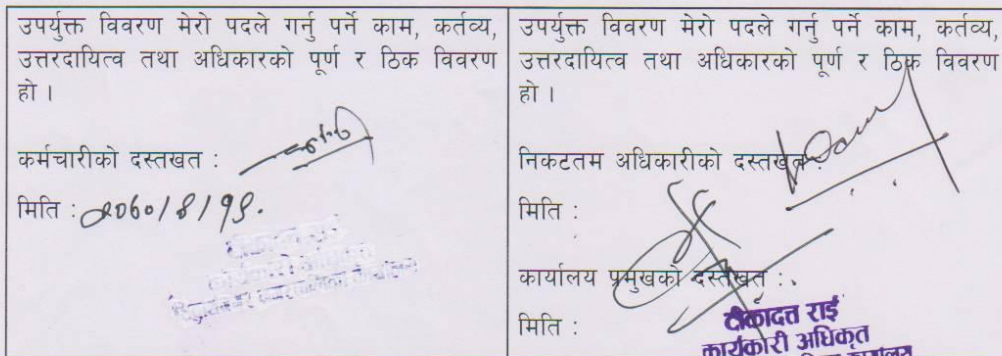 उपर्युक्त विवरण मेरो पदले गर्नु पर्ने काम, कर्तव्य,
उत्तरदायित्व तथा अधिकारको पूर्ण र ठिक विवरण
हो ।
कर्मचारीको दस्तखत :
मिति :
उपर्युक्त विवरण मेरो पदले गर्नु पर्ने काम, कर्तव्य,
उत्तरदायित्व तथा अधिकारको पूर्ण र ठिक विवरण
हो ।
निकटतम अधिकारीको दस्तखत :
मिति :
कार्यालय प्रमुखको दस्तखत :
मिति :
टीकादत्त राई
कार्यकारी अधिकृत